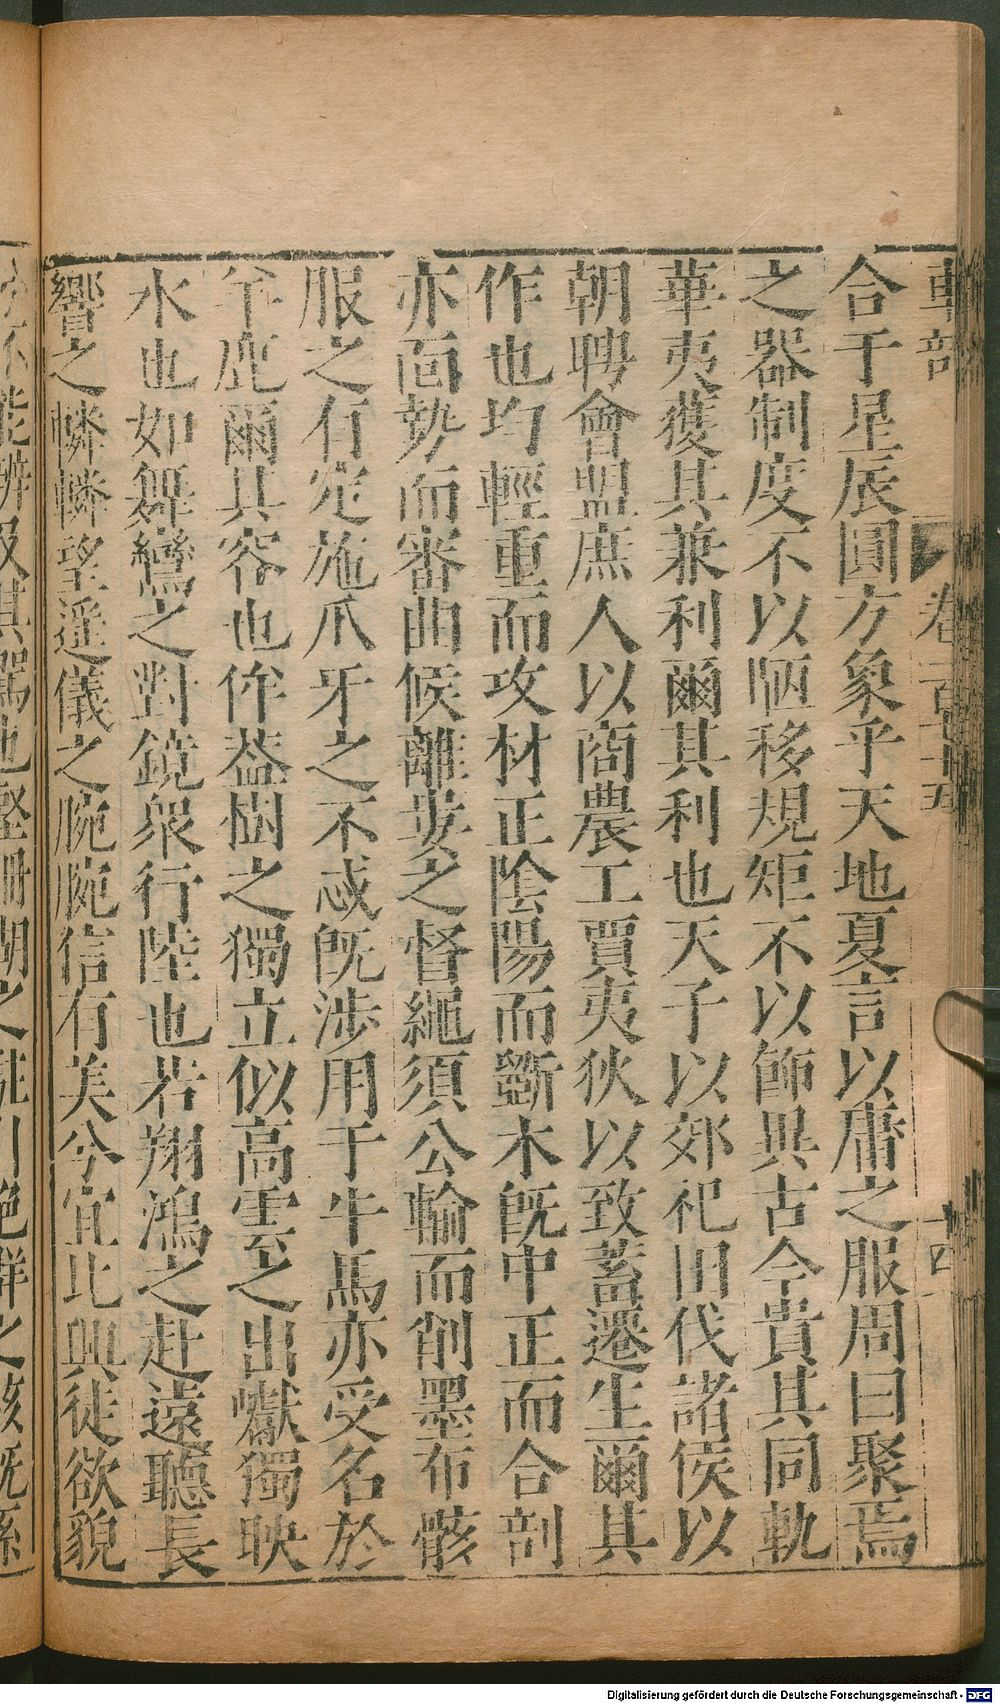 車部 卷一百七十五 十四
合于星辰圓方象乎天地夏言以庸之服周曰聚焉
之器制度不以陋移規矩不以飾異古今貴其同軌
華夷獲其兼利爾其利也天子以郊祀田伐諸侯以
朝聘會盟庶人以商農工賈夷狄以致蓄遷生爾其
作也均輕重而攻材正陰陽而斵木旣中正而合剖
亦面勢而審曲候離婁之督繩須公輸而削墨布骸
服之有定施爪牙之不忒旣涉用于牛馬亦受名於
羊鹿爾其容也侔葢樹之獨立似高雲之出巘獨映
水也如舞鸞之對鏡衆行陸也若翔鴻之赴遠聽長
響之轔轔望遥儀之腕腕信有美兮宜比興徒欲貌
Digitalisierung gefördert durch die Deutsche Forschungsgemeinschaft - DFG